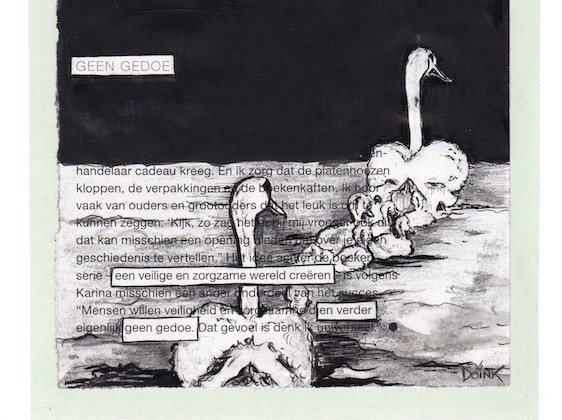 GEEN GEDOE
en-
handelaar cadeau kreeg. En ik zorg dat de platenhoezen
kloppen, de verpakkingen en de boekenkaften. Ik hoor
vaak van ouders en grootouders dat het leuk is om te
kunnen zeggen: ‘Kijk, zo zag het er bij mij vroeger ook uit
dat kan misschien een opening bieden om over je eigen
geschiedenis te vertellen.” Het idee achter de boeken-
serie – een veilige en zorgzame wereld creëren – is volgens
Karina misschien een ander onderdeel van het succes.
“Mensen willen veiligheid en zorgzaamheid en verder
eigenlijk geen gedoe. Dat gevoel is denk ik universeel.”
DOINK